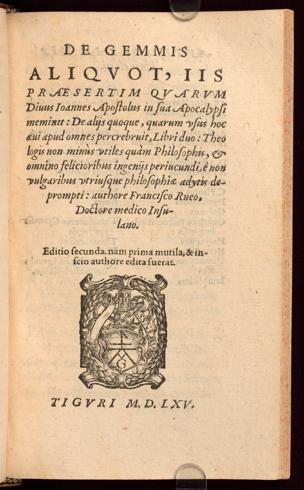 DE GEMMIS
ALIQVOT, IIS
PRAESERTIM QVARVM
Diuus Ioannes Apostolus in sua Apocalypsi
meminit: De alijs quoque, quarum vsus hoc
æui apud omnes percrebruit, Libri duo: Theo
logis non minus vtiles quàm Philosophis, &
omnino felicioribus ingenijs periucundi, è non
vulgaribus vtriusque philosophiæ adytis de-
prompti: authore Francisco Rueo,
Doctore medico Insu-
lano.
Editio secunda. nam prima mutila, & in-
scio authore edita fuerat.
G
TIGVRI M. D. LXV.